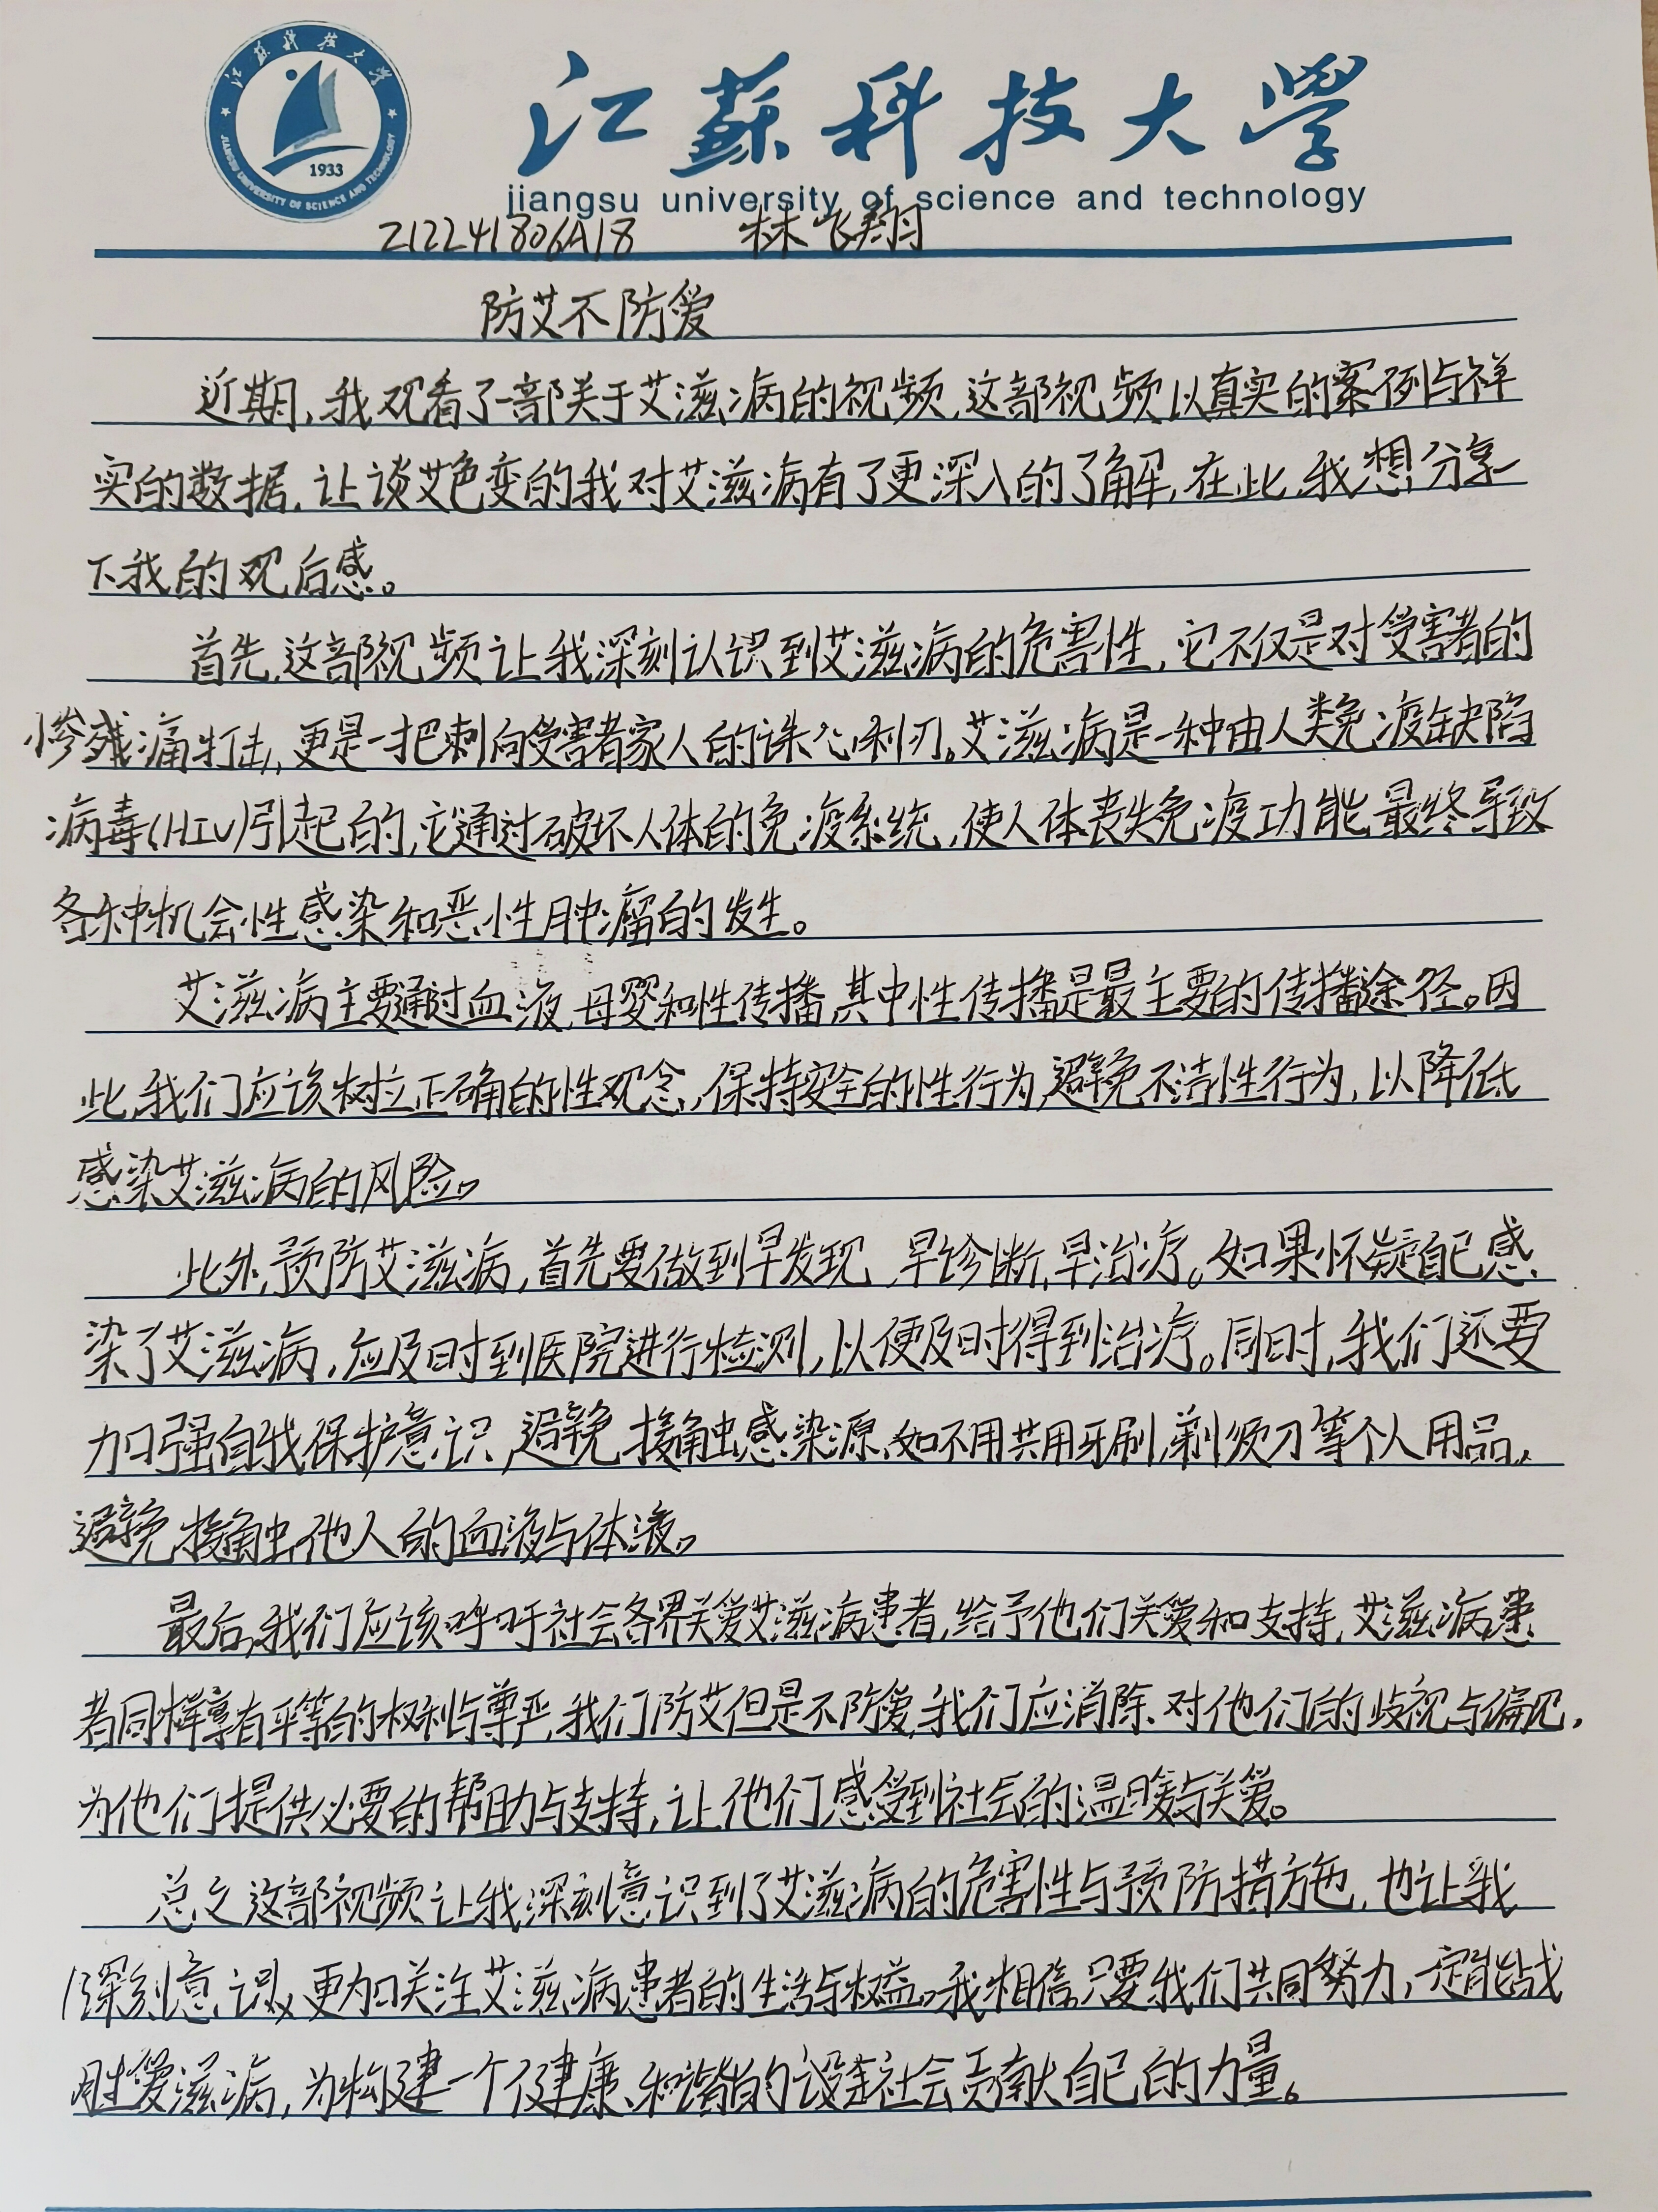 江苏科技大学
JIANGSU UNIVERSITY OF SCIENCE AND TECHNOLOGY
1933
江蘇科技大學
jiangsu university of science and technology
212241806A18 林飞翔
防艾不防爱
近期,我观看了一部关于艾滋病的视频,这部视频以真实的案例与祥
实的数据,让谈艾色变的我对艾滋病有了更深入的了解,在此,我想分享一
下我的观后感。
首先,这部视频让我深刻认识到艾滋病的危害性,它不仅是对受害者的
惨残痛打击,更是一把刺向受害者家人的诛心利刃。艾滋病是一种由人类免疫缺陷
病毒(HIV)引起的,它通过破坏人体的免疫系统,使人体丧失免疫功能,最终导致
各种机会性感染和恶性肿瘤的发生。
艾滋病主要通过血液,母婴和性传播,其中性传播是最主要的传播途径。因
此,我们应该树立正确的性观念,保持安全的性行为,避免不洁性行为,以降低
感染艾滋病的风险。
此外,预防艾滋病,首先要做到早发现,早诊断,早治疗。如果怀疑自己感
染了艾滋病,应及时到医院进行检测,以便及时得到治疗。同时,我们还要
加强自我保护意识,避免接触感染源,如不用共用牙刷,剃须刀等个人用品,
避免接触他人的血液与体液。
最后,我们应该呼吁社会各界关爱艾滋病患者,给予他们关爱和支持,艾滋病患
者同样享有平等的权利与尊严,我们防艾但是不防爱,我们应消除对他们的歧视与偏见,
为他们提供必要的帮助与支持,让他们感受到社会的温暖与关爱。
总之,这部视频让我深刻意识到了艾滋病的危害性与预防措施,也让我
深刻意识,更加关注艾滋病患者的生活与权益。我相信,只要我们共同努力,一定能战
胜爱滋病,为构建一个健康、和谐的社会贡献自己的力量。